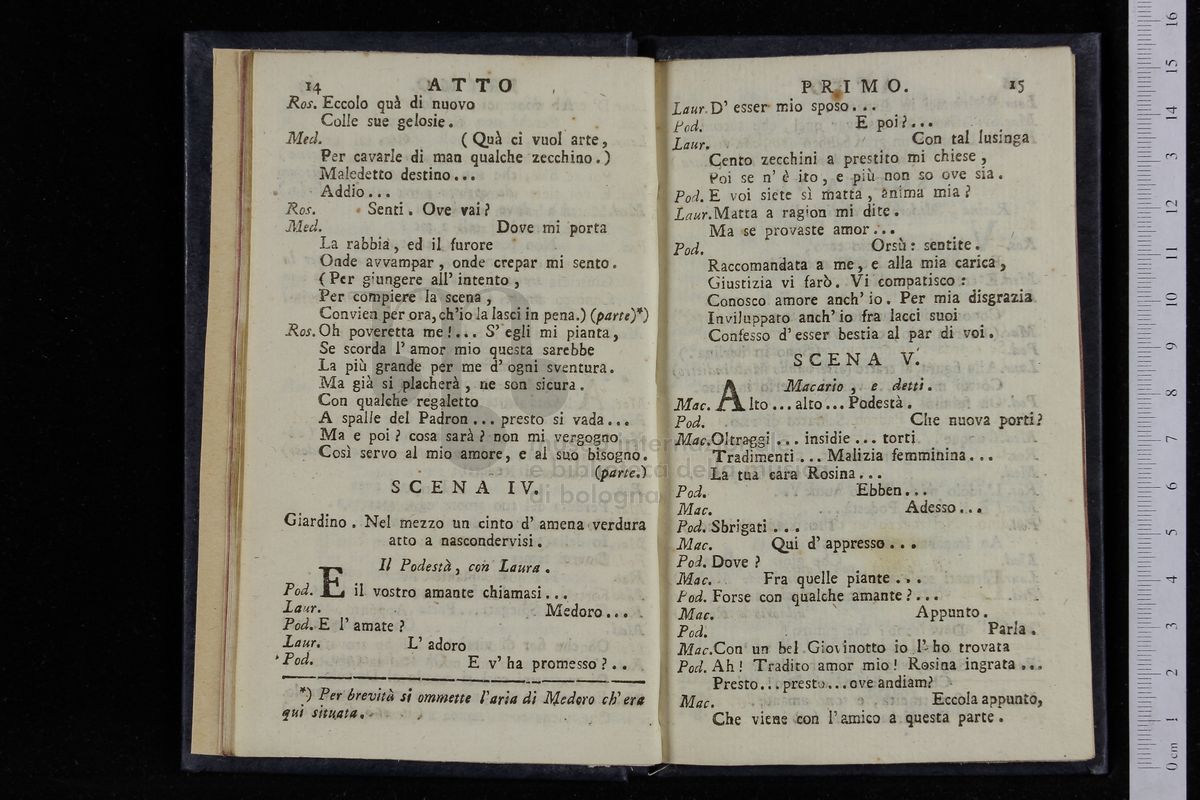 14 ATTO
Ros. Eccolo quà di nuovo
Colle sue gelosie.
Med. (Quà ci vuol arte,
Per cavarle di man qualche zecchino.)
Maledetto destino...
Addio...
Ros. Senti. Ove vai?
Med. Dove mi porta
La rabbia, ed il furore
Onde avvampar, onde crepar mi sento.
(Per giungere all' intento,
Per compiere la scena,
Convien per ora, ch'io la lasci in pena.) (parte)*)
Ros. Oh poveretta me!... S' egli mi pianta,
Se scorda l' amor mio questa sarebbe
La più grande per me d' ogni sventura.
Ma già si placherà, ne son sicura.
Con qualche regaletto
A spalle del Padron... presto si vada...
Ma e poi? cosa sarà? non mi vergogno
Così servo al mio amore, e al suo bisogno.
(parte.)
SCENA IV.
Giardino. Nel mezzo un cinto d' amena verdura
atto a nascondervisi.
Il Podestà, con Laura.
Pod. E il vostro amante chiamasi...
Laur. Medoro...
Pod. E l' amate?
Laur. L' adoro
Pod. E v' ha promesso?..
*) Per brevità si ommette l'aria di Medoro ch' era
qui situata.
PRIMO. 15
Laur. D' esser mio sposo...
Pod. E poi?...
Laur. Con tal lusinga
Cento zecchini a prestito mi chiese,
Poi se n' è ito, e più non so ove sia.
Pod. E voi siete sì matta, anima mia?
Laur. Matta a ragion mi dite.
Ma se provaste amor...
Pod. Orsù: sentite.
Raccomandata a me, e alla mia carica,
Giustizia vi farò. Vi compatisco:
Conosco amore anch' io. Per mia disgrazia
Inviluppato anch' io fra lacci suoi
Confesso d' esser bestia al par di voi.
SCENA V.
Macario, e detti.
Mac. Alto... alto... Podestà.
Pod. Che nuova porti?
Mac. Oltraggi... insidie... torti
Tradimenti... Malizia femminina...
La tua cara Rosina...
Pod. Ebben...
Mac. Adesso...
Pod. Sbrigati...
Mac. Qui d' appresso...
Pod. Dove?
Mac. Fra quelle piante...
Pod. Forse con qualche amante?...
Mac. Appunto.
Pod. Parla.
Mac. Con un bel Giovinotto io l' ho trovata
Pod. Ah! Tradito amor mio! Rosina ingrata...
Presto... presto... ove andiam?
Mac. Eccola appunto,
Che viene con l' amico a questa parte.
museo internazionale
e biblioteca della musica
di bologna
0 cm 1 2 3 4 5 6 7 8 9 10 11 12 13 14 15 16